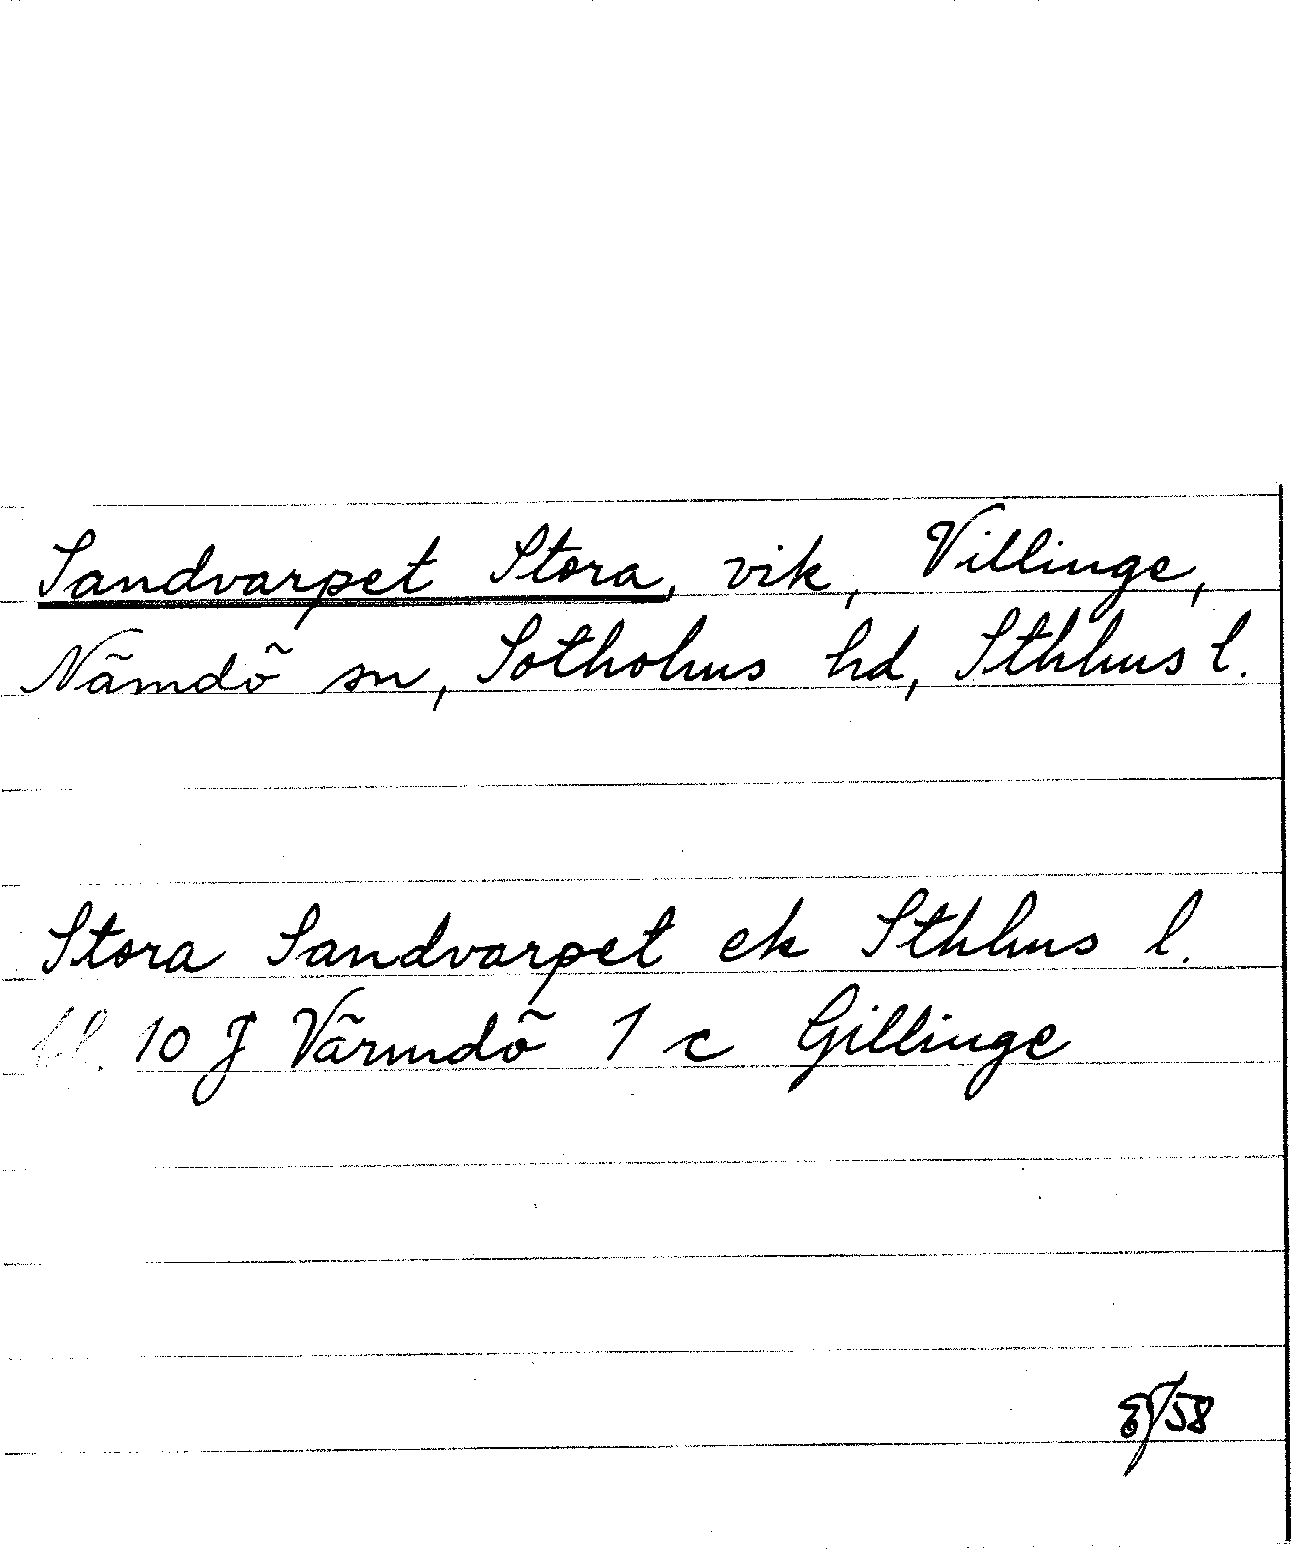 Sandvarpet Stora, vik, Villinge,
Nämdö sn, Sotholms hd, Sthlms l.
Stora Sandvarpet ek Sthlms l.
bl. 10 J Värmdö 1 c Gillinge
/58